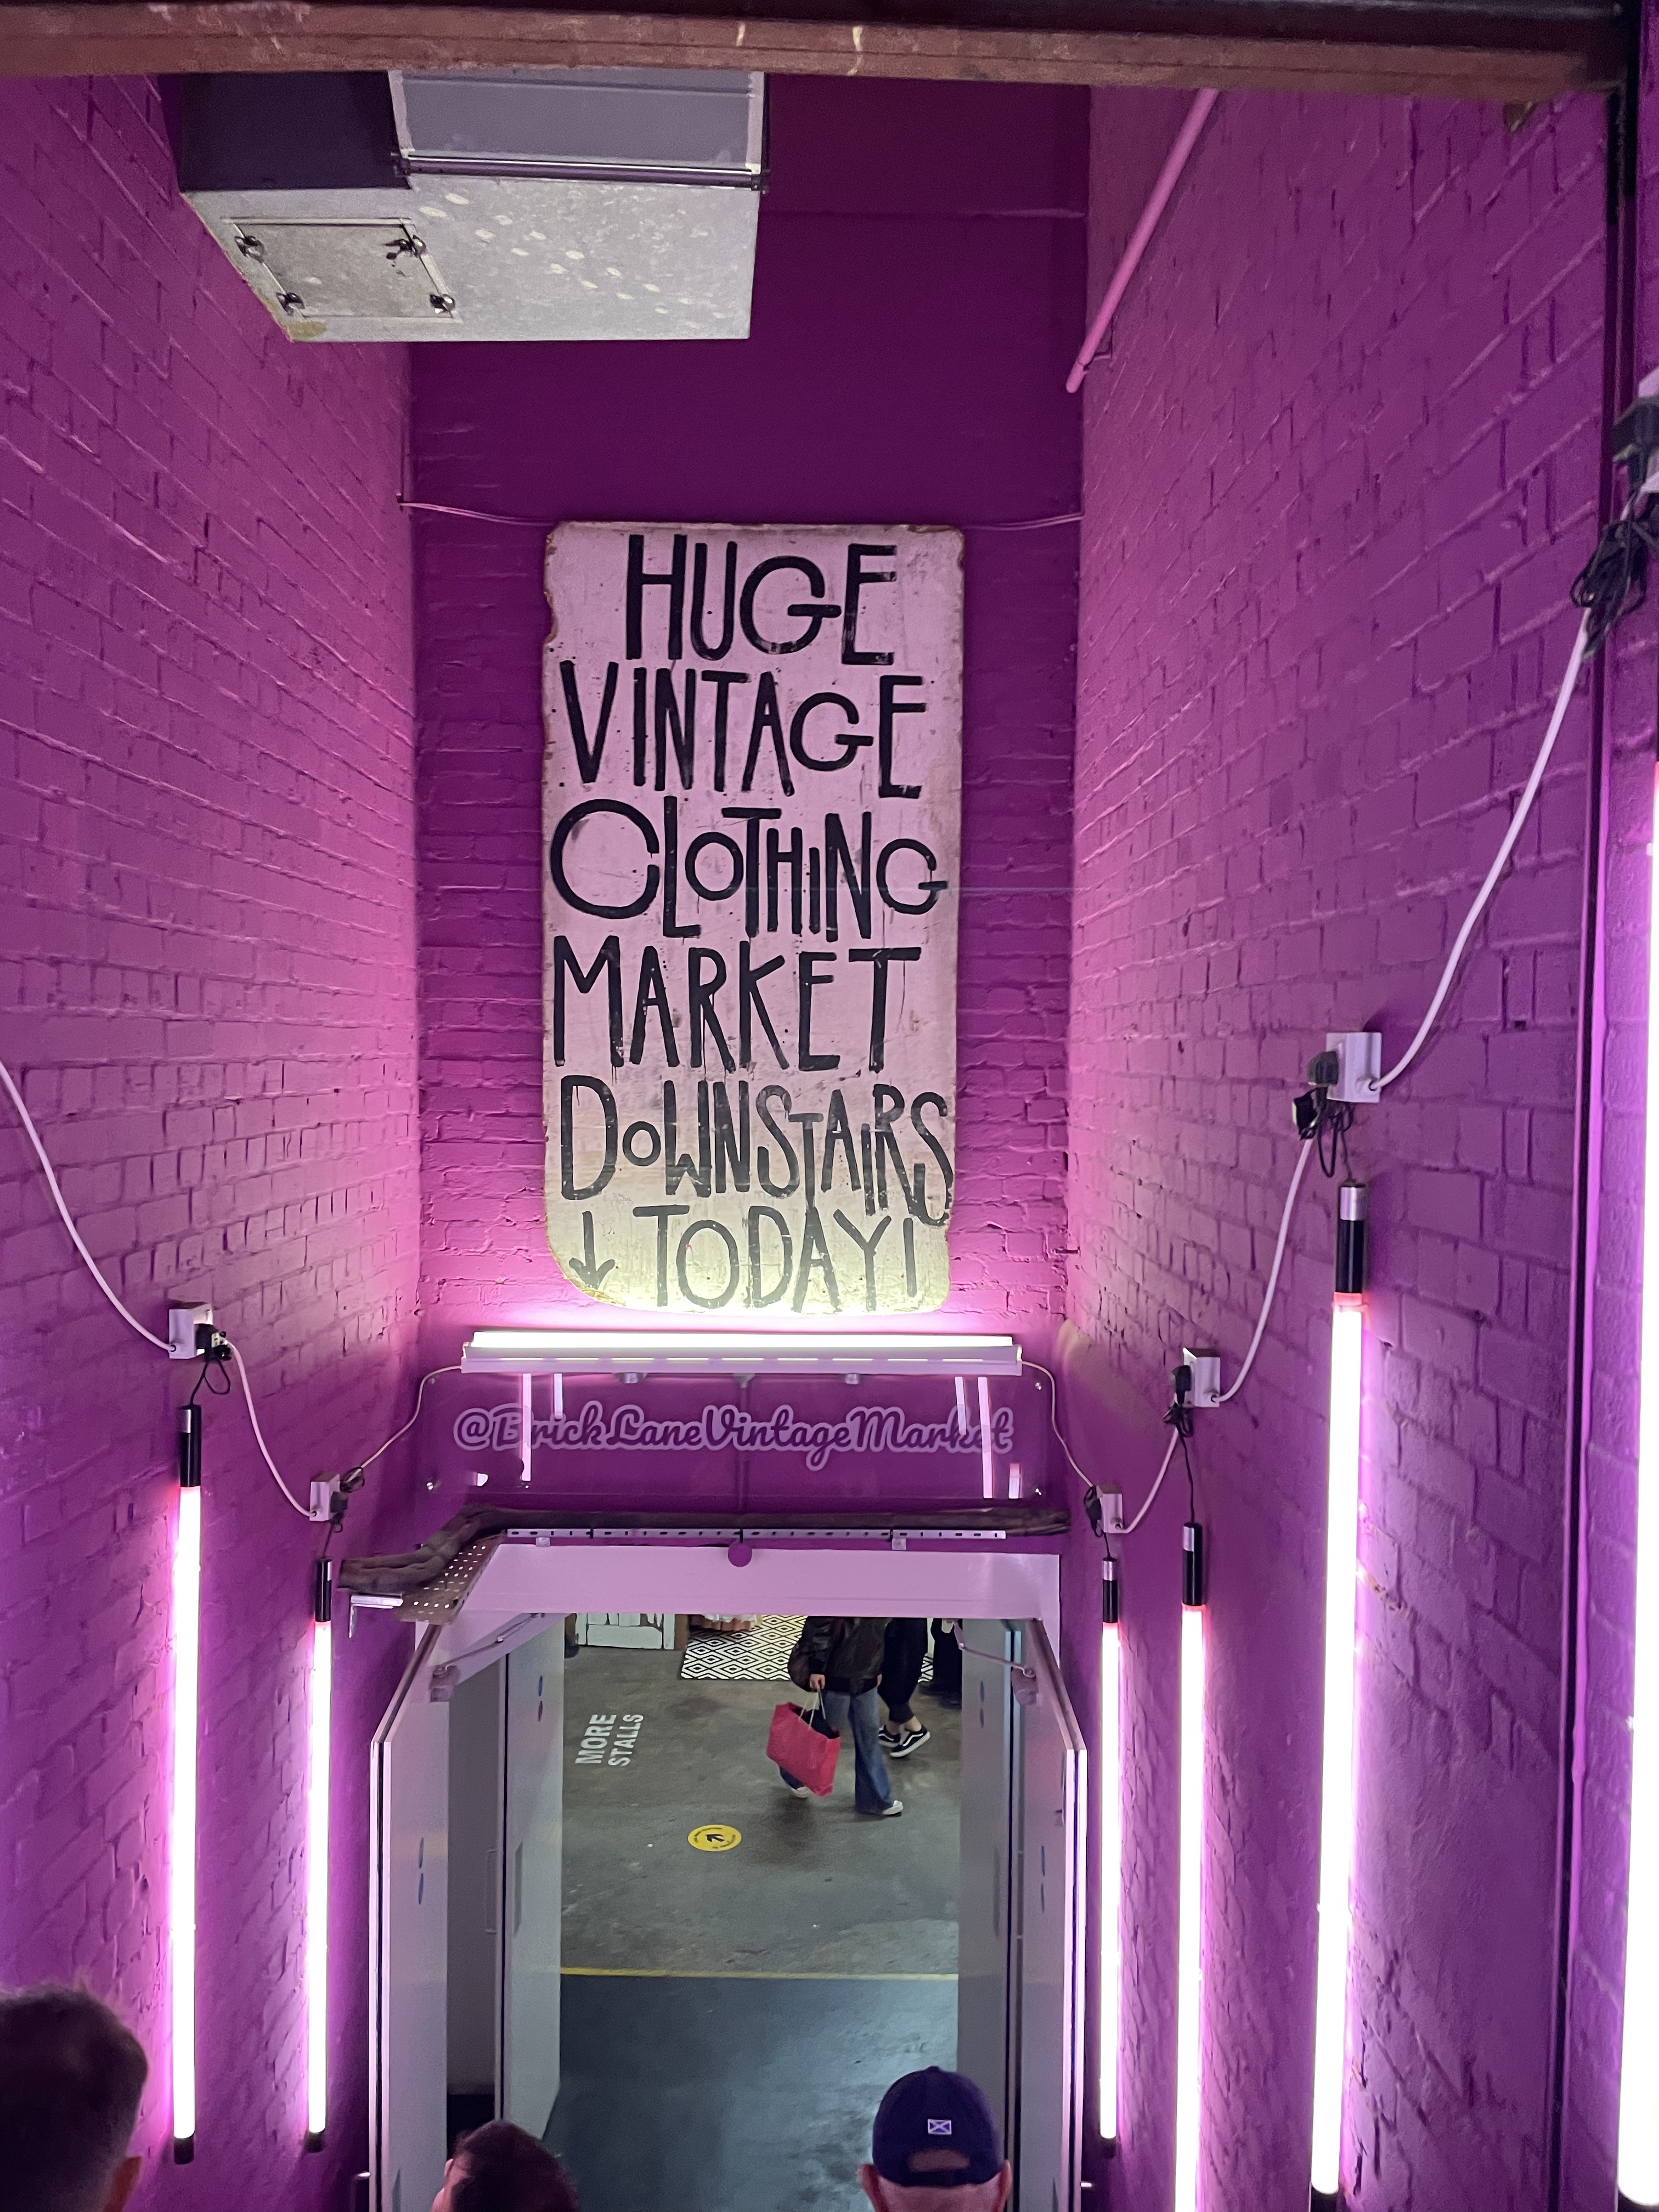 HUGE
VINTAGE
CLOTHING
MARKET
DOWNSTAIRS
↓ TODAY!
@BrickLaneVintageMarket
MORE
STALLS